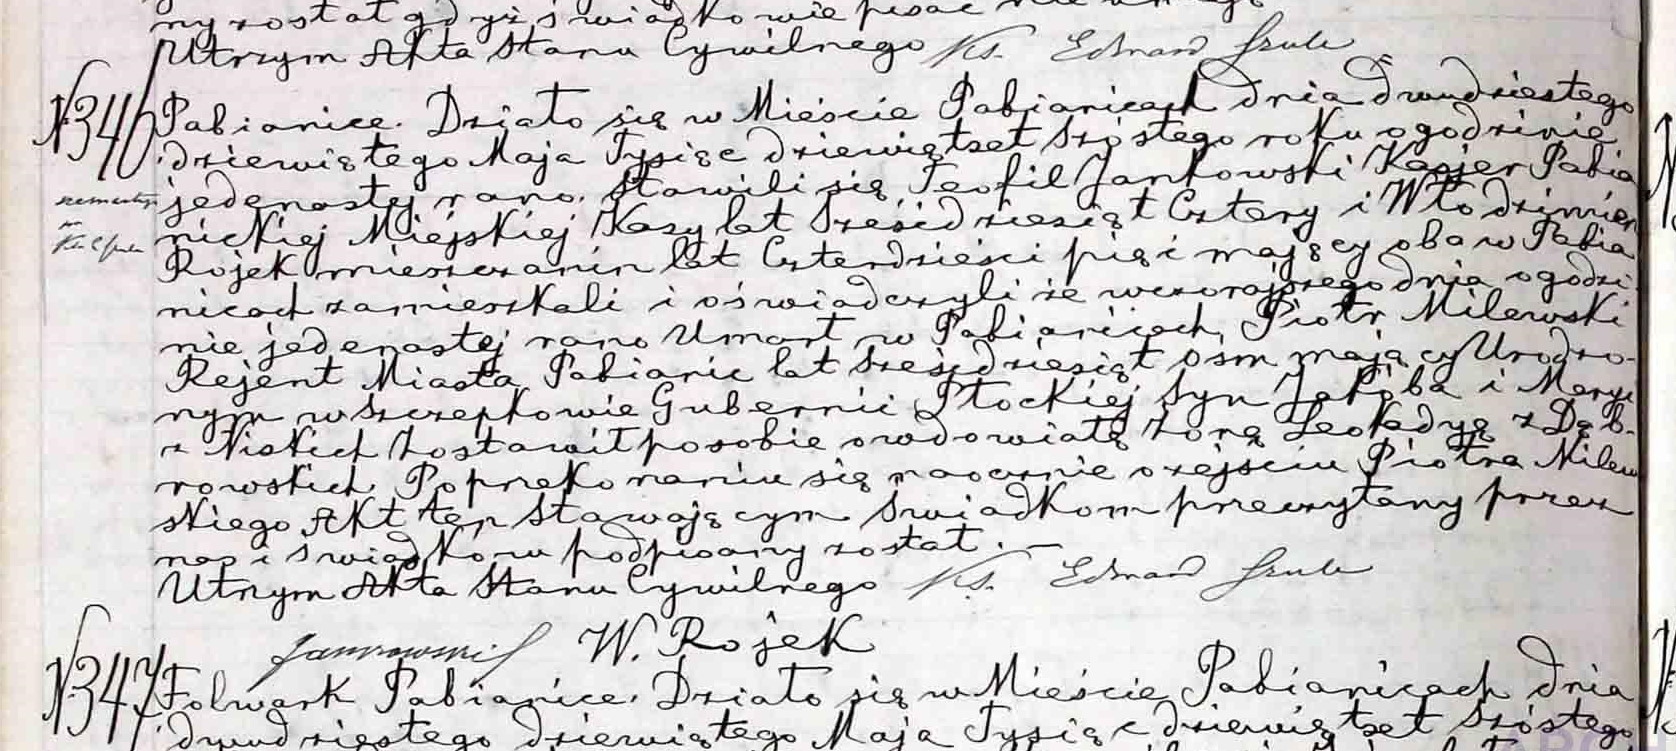 ny został gdyż świadkowie pisać nie umieją
Utrzym Akta Stanu Cywilnego Ks. Edward Szulc
N346 Pabianice. Działo się w Mieście Pabianicach dnia dwudziestego
dziewiątego Maja Tysiąc dziewiętset szóstego roku o godzinie
jedenastej rano. Stawili się Teofil Jankowski Kasjer Pabia
nickiej Miejskiej Kasy lat sześćdziesiąt cztery i Włodzimierz
Rojek mieszczanin lat czterdzieści pięć mający oba w Pabia
nicach zamieszkali i oświadczyli że wczorajszego dnia o godzi-
nie jedenastej rano Umarł w Pabianicach Piotr Milewski
Rejent Miasta Pabianic lat sześćdziesiąt ośm mający Urodzo-
nym w Szczepkowie Gubernii Płockiej syn Jakóba i Maryi
z Niskich Zostawił po sobie owdowiałą żonę Leokadyę z Dąb-
rowskich. Po przekonaniu się naocznie o zejściu Piotra Milew
skiego Akt ten Stawającym świadkom przeczytany przez
nas i świadków podpisany został. —
Utrzym Akta Stanu Cywilnego Ks. Edward Szulc
Jankowski W. Rojek
N347 Folwark Pabianice. Działo się w Mieście Pabianicach dnia
dwudziestego dziewiątego Maja Tysiąc dziewiętset szóstego